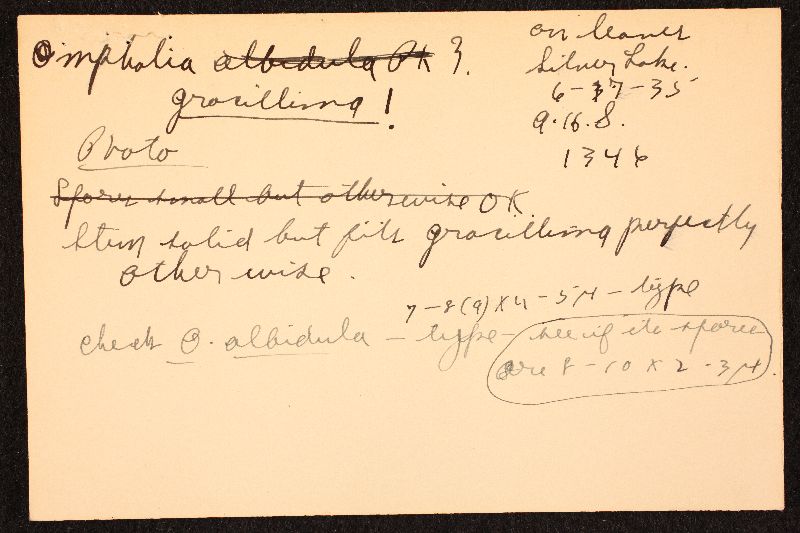 Omphalia albidula Pk ?.
gracillima !
on leaves
Silver Lake.
6-17-35
A.H.S.
1346
Photo
Spores small but otherwise OK
Stem solid but fits gracillima perfectly
otherwise.
7-8(9) X 4-5 µ - type
check O. albidula - type - see if its spores
are 8-10 x 2-3 µ.